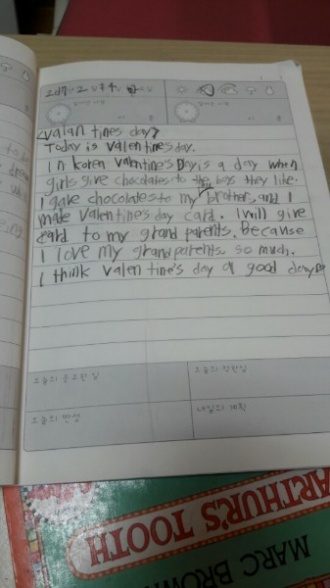 2017. 2. 14.
<valan tines day>
Today is valentines day.
In korea valentines Day is a day when
girls give chocolates to the boys they like.
I gave chocolates to my brother, and I
made valentines day card. I will give
card to my grand parents. Because
I love my grandparents. so much.
I think valen tine's day a good day
오늘의 중요한 일
오늘의 착한일
오늘의 반성
내일의 계획
ARTHUR'S TOOTH
MARC BROWN